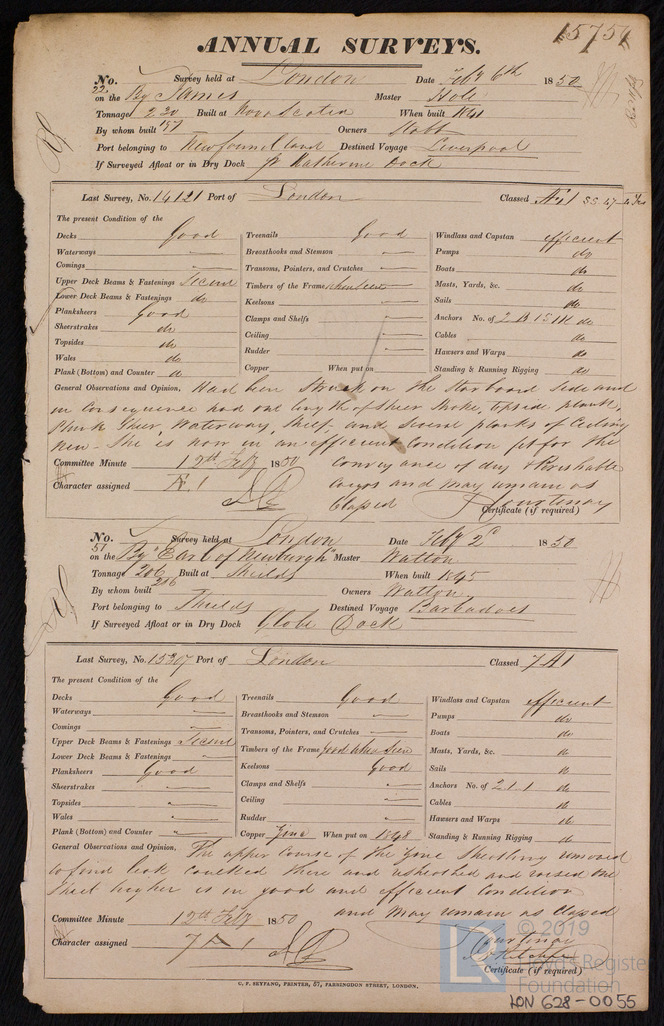 15751
ANNUAL SURVEYS.
No. Survey held at London Date Feby 6th 1850
22 on the Bg James Master Hole
Tonnage 230 Built at Nova Scotia When built 1841
By whom built 157 Owners Stabb
Port belonging to Newfoundland Destined Voyage Liverpool
If Surveyed Afloat or in Dry Dock St Katherine Dock
Last Survey, No. 14121 Port of London Classed A1 SS 47-4 Yrs
The present Condition of the
Decks Good Treenails Good Windlass and Capstan efficient
Waterways Breasthooks and Stemson Pumps do
Comings Transoms, Pointers, and Crutches Boats do
Upper Deck Beams & Fastenings Secure Timbers of the Frame when seen Masts, Yards, &c. do
Lower Deck Beams & Fastenings do Keelsons Sails do
Planksheers Good Clamps and Shelfs Anchors No. of 2 B 1 S 1 K do
Sheerstrakes do Ceiling Cables do
Topsides do Rudder Hawsers and Warps do
Wales do Copper When put on Standing & Running Rigging do
Plank (Bottom) and Counter do
General Observations and Opinion, Had been struck on the Starboard side and
in consequence had one length of sheer strake, topside plank,
Plank Sheer, Waterway, Shelf, and several planks of Ceiling
New - She is now in an efficient Condition fit for the
Committee Minute 12th Feby 1850 conveyance of dry & Perishable
Character assigned A1 cargos and may remain as
Classed Courtenay
Certificate (if required)
No. Survey held at London Date Feby 2d 1850
51 on the Bg "Earl of Newburgh" Master Watton
Tonnage 206 Built at Shields When built 1845
By whom built 216 Owners Watton
Port belonging to Shields Destined Voyage Barbadoes
If Surveyed Afloat or in Dry Dock Globe Dock
Last Survey, No. 15307 Port of London Classed 7A1
The present Condition of the
Decks Good Treenails Good Windlass and Capstan efficient
Waterways Breasthooks and Stemson Pumps do
Comings Transoms, Pointers, and Crutches Boats do
Upper Deck Beams & Fastenings Secure Timbers of the Frame good when seen Masts, Yards, &c. do
Lower Deck Beams & Fastenings Keelsons Good Sails do
Planksheers Good Clamps and Shelfs Anchors No. of 2 1 1 do
Sheerstrakes Ceiling Cables do
Topsides Rudder Hawsers and Warps do
Wales Copper Zinc When put on 1848 Standing & Running Rigging do
Plank (Bottom) and Counter
General Observations and Opinion, The upper Course of the Zinc Sheathing removed
to find leak caulked there and resheathed and raised one
Sheet higher is in good and efficient Condition
Committee Minute 12th Feby 1850 and may remain as Classed
Character assigned 7A1 Courtenay
Certificate (if required)
C. F. SEYFANG, PRINTER, 57, FARRINGDON STREET, LONDON.
© 2019
Lloyd's Register
Foundation
LON 628-0055